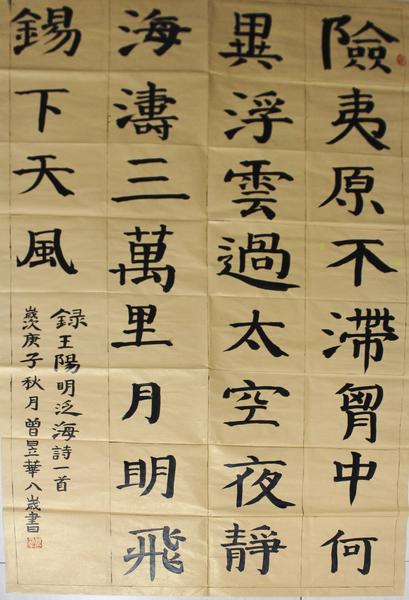 險夷原不滯胷中何
異浮雲過太空夜靜
海濤三萬里月明飛
錫下天風
録王陽明泛海詩一首
歲次庚子秋月曾昱華八歲書